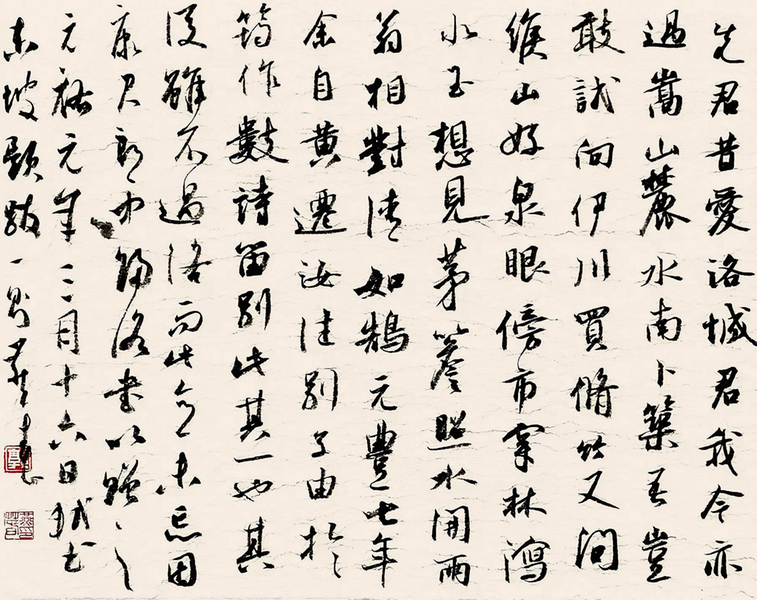 先君昔愛洛城居我今亦
過嵩山麓水南卜築吾豈
敢試向伊川買脩竹又聞
緱山好泉眼傍市穿林瀉
冰玉想見茅簷照水開兩
翁相對清如鵠元豐七年
余自黃遷汝往別子由於
筠作數詩留別此其一也其
後雖不過洛而此意未忘因
康君郎中歸洛書以贈之
元祐元年三月十六日軾書
東坡題跋一則